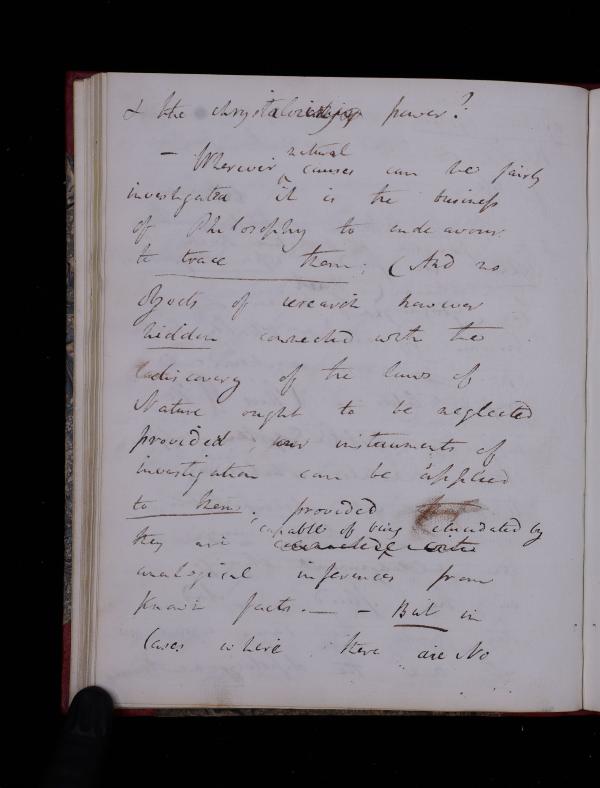 & the chrystalizing power?
natural
- Wherever causes can be fairly
investigated it is the business
of Philosophy to endeavour
to trace them; (And no
objects of research however
hidden connected with the
discovery of the laws of
Nature ought to be neglected
provided our instruments of
investigation can be applied
to them; provided
capable of being elucidated by
they are connected with
analogical inferences from
known facts. — - But in
Cases where there are No